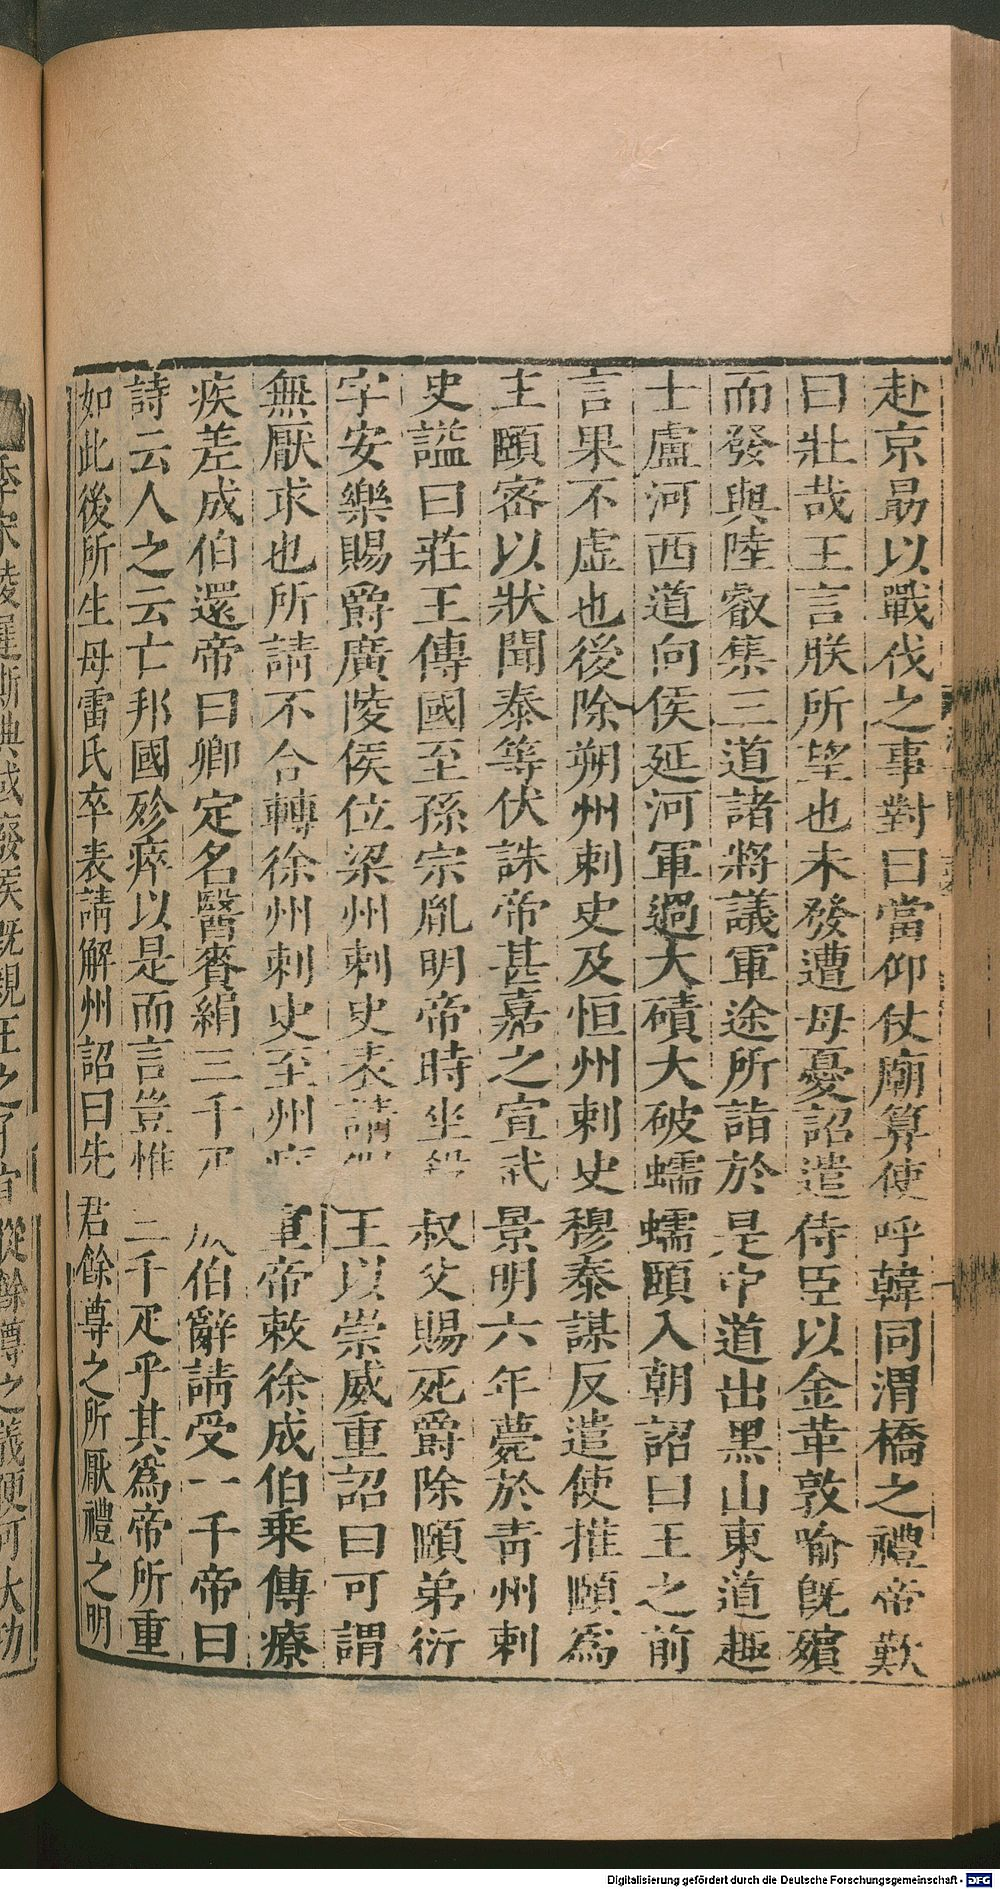 赴京勗以戰伐之事對曰當仰仗廟算使呼韓同渭橋之禮帝歎
曰壯哉王言朕所望也未發遭母憂詔遣侍臣以金革敦喻旣殯
而發與陸叡集三道諸將議軍途所詣於是中道出黑山東道趣
士盧河西道向侯延河軍過大磧大破蠕蠕頤入朝詔曰王之前
言果不虛也後除朔州刺史及恒州刺史穆泰謀反遣使推頤爲
主頤密以狀聞泰等伏誅帝甚嘉之宣武景明六年薨於靑州刺
史謚曰莊王傳國至孫宗胤明帝時坐殺叔父賜死爵除頤弟衍
字安樂賜爵廣陵侯位梁州刺史表請假王以崇威重詔曰可謂
無厭求也所請不合轉徐州刺史至州病重帝敕徐成伯乘傳療
疾差成伯還帝曰卿定名醫賚絹三千疋成伯辭請受一千帝曰
詩云人之云亡邦國殄瘁以是而言豈惟三千疋乎其爲帝所重
如此後所生母雷氏卒表請解州詔曰先君餘尊之所厭禮之明
之義便可大功
Digitalisierung gefördert durch die Deutsche Forschungsgemeinschaft - DFG